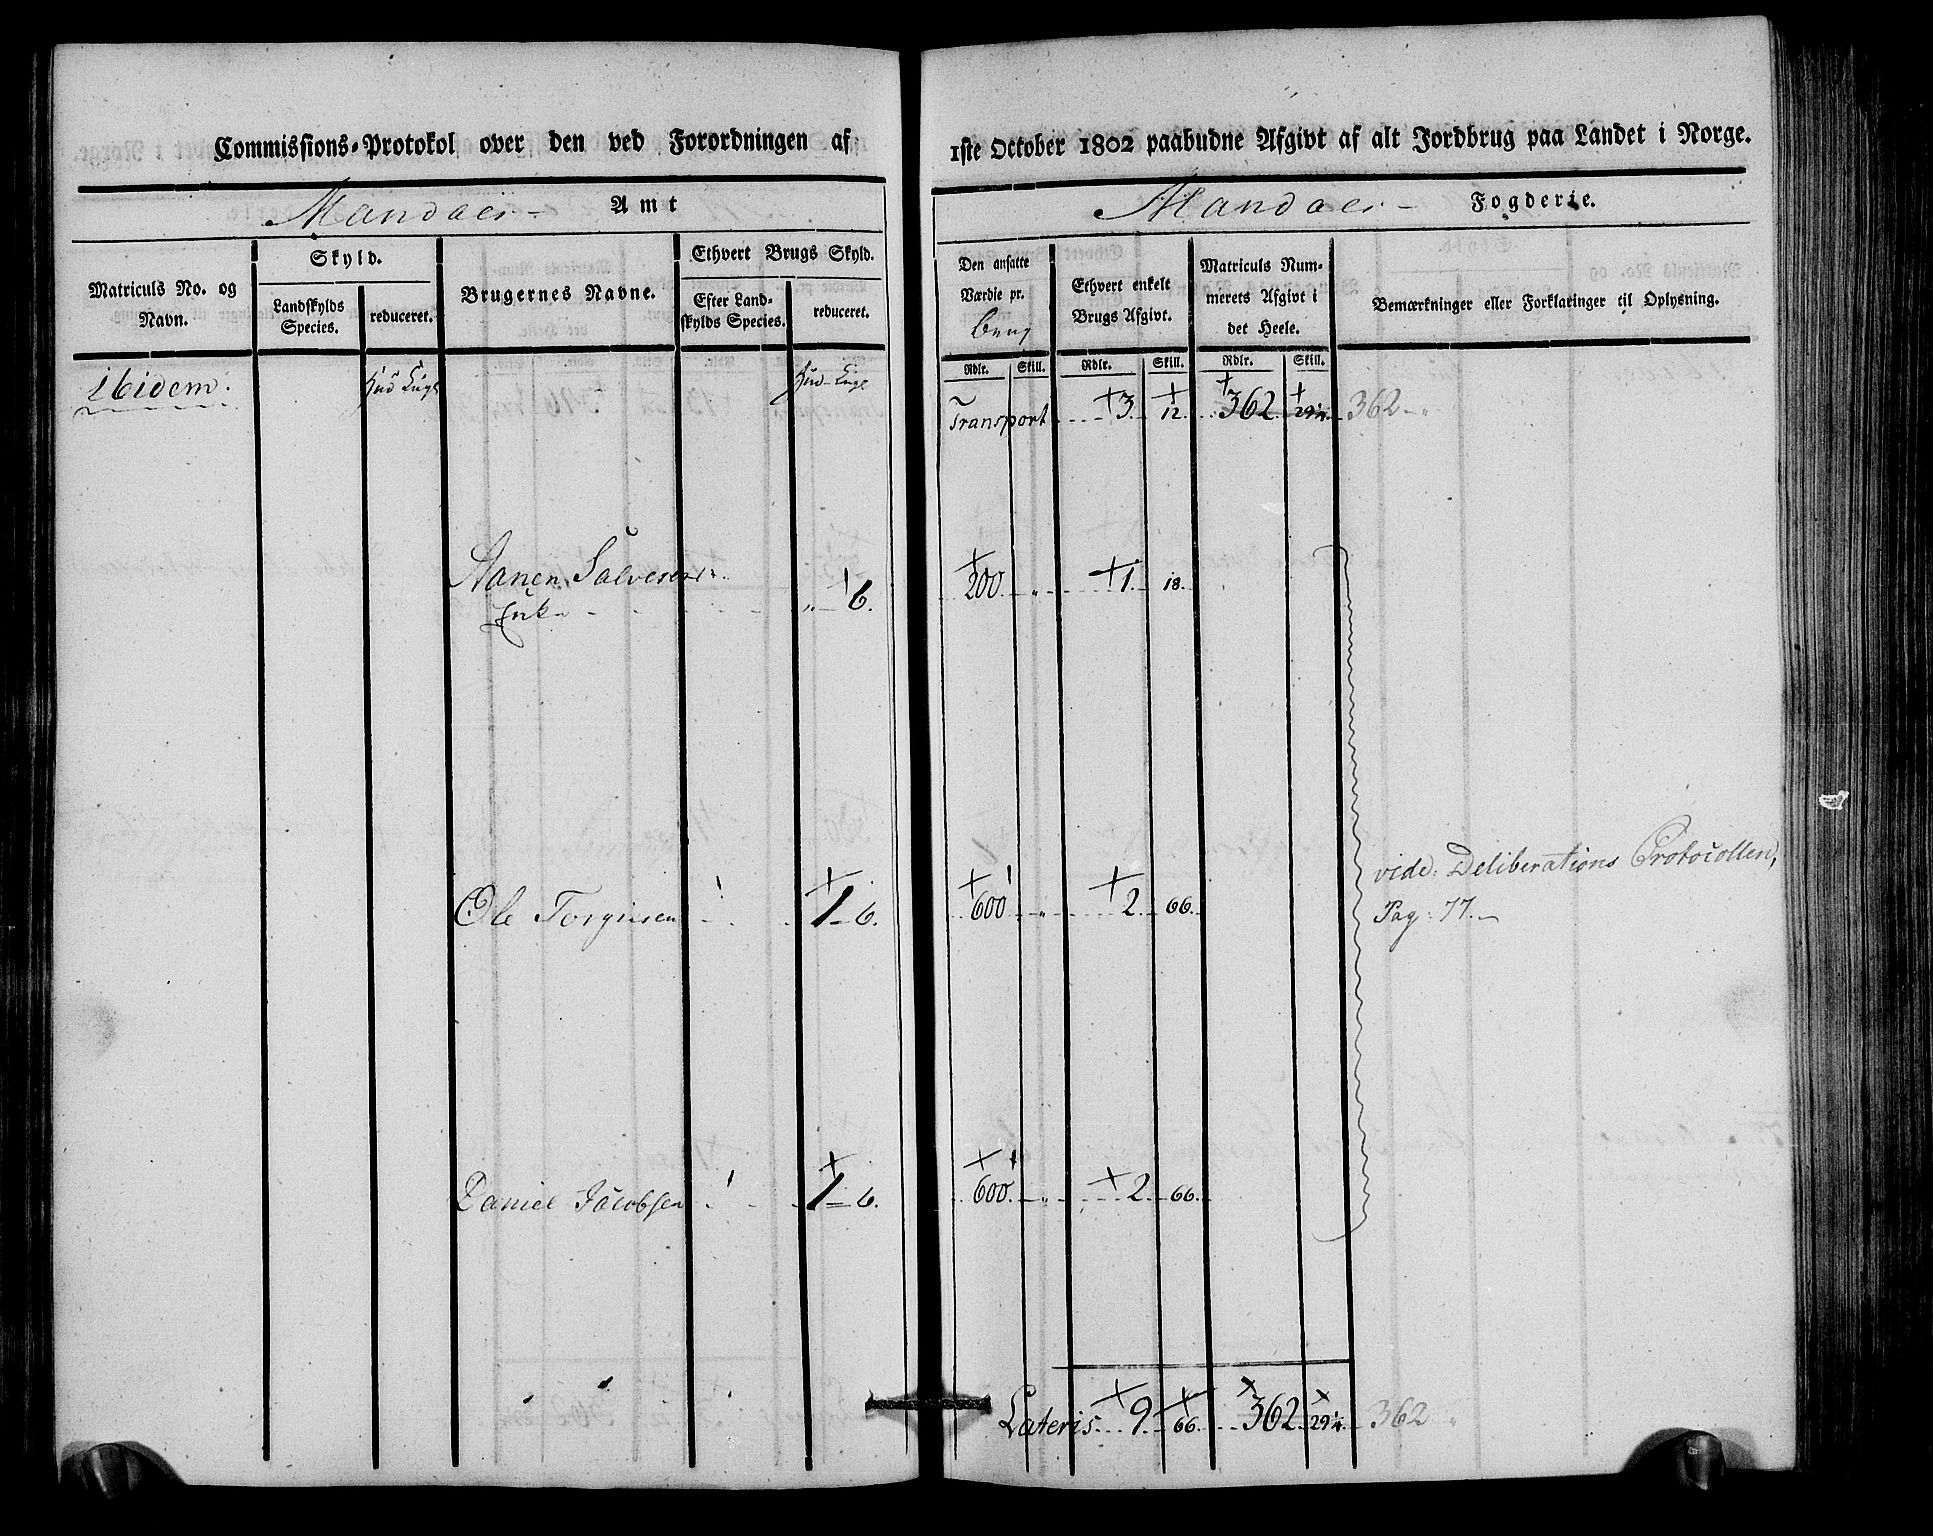 Commissions-Protokol over den ved Forordningen af
Mandals- Amt
Matriculs No. og Navn.
Skyld.
Landskylds Species.
reduceret.
Brugernes Navne.
Ethvert Brugs Skyld.
Efter Landskylds Species.
reduceret.
ibidem.
Hud
Hud
Aanen Salvesens
Enke
" 6.
Ole Torgiusen
1 - 6.
Daniel Jacobsen
1 - 6.
1ste October 1802 paabudne Afgivt af alt Jordbrug paa Landet i Norge.
Mandals- Fogderie.
Den ansatte Værdie pr. brug
Ethvert enkelt Brugs Afgivt.
Matriculs Nummerets Afgivt i det Heele.
Bemærkninger eller Forklaringer til Oplysning.
Rdlr. Skill. Rdlr. Skill. Rdlr. Skill.
Transport 3. 12. 362. 29¼ 362 - "
200. " 1. 18.
600 " 2. 66.
vide: Deliberations Protocollen,
Pag: 77.
600. " 2. 66.
Lateris 9. 66. 362 29¼ 362 "